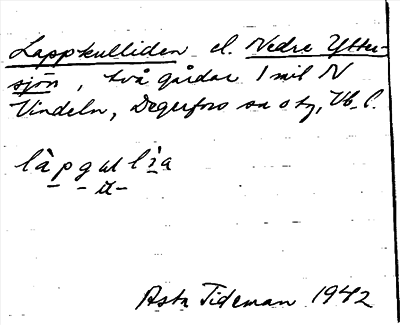 Lappkulliden el. Nedre Ytter-
sjön, två gårdar 1 mil N
Vindeln, Degerfors sn o tg, Vb. l.
Asta Tideman 1942